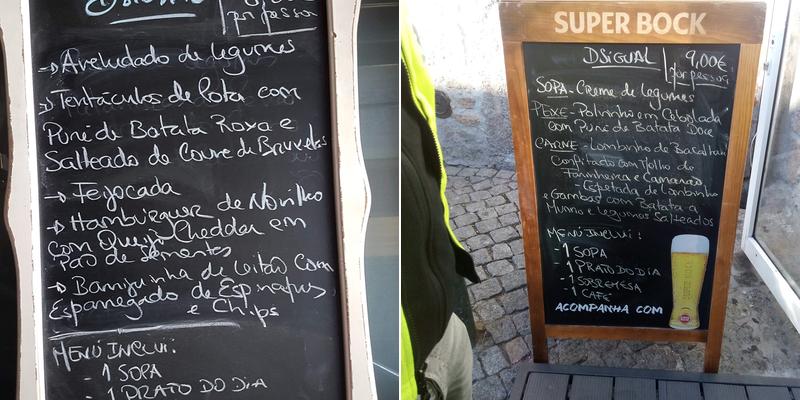 por pessoa
→ Aveludado de legumes
→ Tentáculos de Pota com
Puré de Batata Roxa e
Salteado de Couve de Bruxelas
→ Feijocada
→ Hambúrguer de Novilho
com Queijo Cheddar em
Pão de Sementes
→ Barriguinha de Leitão com
Esparregado de Espinafres
e Chips
MENÚ INCLUI:
- 1 SOPA
- 1 PRATO DO DIA
SUPER BOCK
DSIGUAL
9,00€
por pessoa
SOPA - Creme de legumes
PEIXE - Polvinho em Cebolada
com Puré de Batata Doce
CARNE - Lombinho de Bacalhau
Confitado com Molho de
Farinheira e Camarão
- Espetada de Lombinho
e Gambas com Batata a
Murro e Legumes Salteados
MENÚ INCLUI:
- 1 SOPA
- 1 PRATO DO DIA
- 1 SOBREMESA
- 1 CAFÉ
ACOMPANHA COM
SUPER BOCK